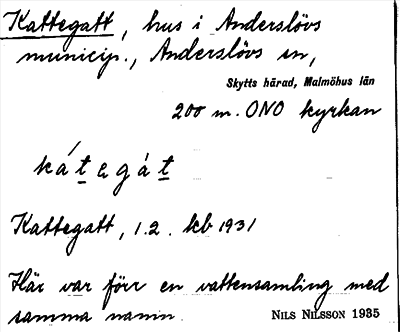 Kattegatt, hus i Anderslövs
municip., Anderslövs sn,
Skytts härad, Malmöhus län
200 m. ONO kyrkan
kátegát
Kattegatt, 1.2. kb 1931
Här var förr en vattensamling med
samma namn.
NILS NILSSON 1935